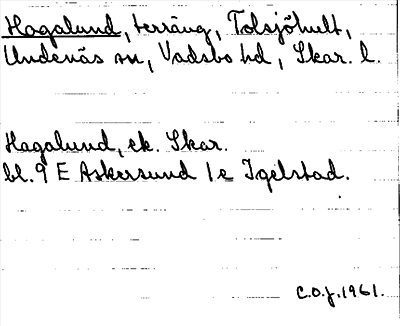 Hagalund, terräng, Tolsjöhult,
Undenäs sn, Vadsbo hd, Skar. l.
Hagalund, ek. Skar.
bl. 9 E Askersund 1 e Igelstad.
C.O.J. 1961.